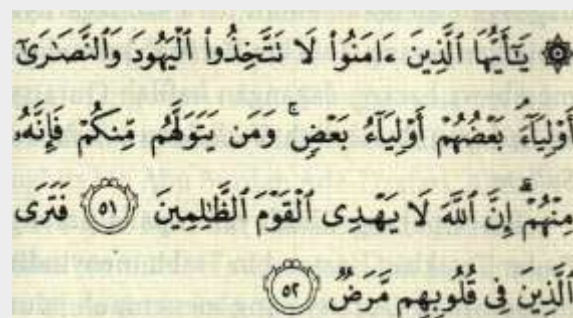 ۞ يَٰٓأَيُّهَا ٱلَّذِينَ ءَامَنُوا۟ لَا تَتَّخِذُوا۟ ٱلْيَهُودَ وَٱلنَّصَٰرَىٰٓ
أَوْلِيَآءَ ۘ بَعْضُهُمْ أَوْلِيَآءُ بَعْضٍ ۚ وَمَن يَتَوَلَّهُم مِّنكُمْ فَإِنَّهُۥ
مِنْهُمْ ۗ إِنَّ ٱللَّهَ لَا يَهْدِى ٱلْقَوْمَ ٱلظَّٰلِمِينَ ٥١ فَتَرَى
ٱلَّذِينَ فِى قُلُوبِهِم مَّرَضٌ ٥٢